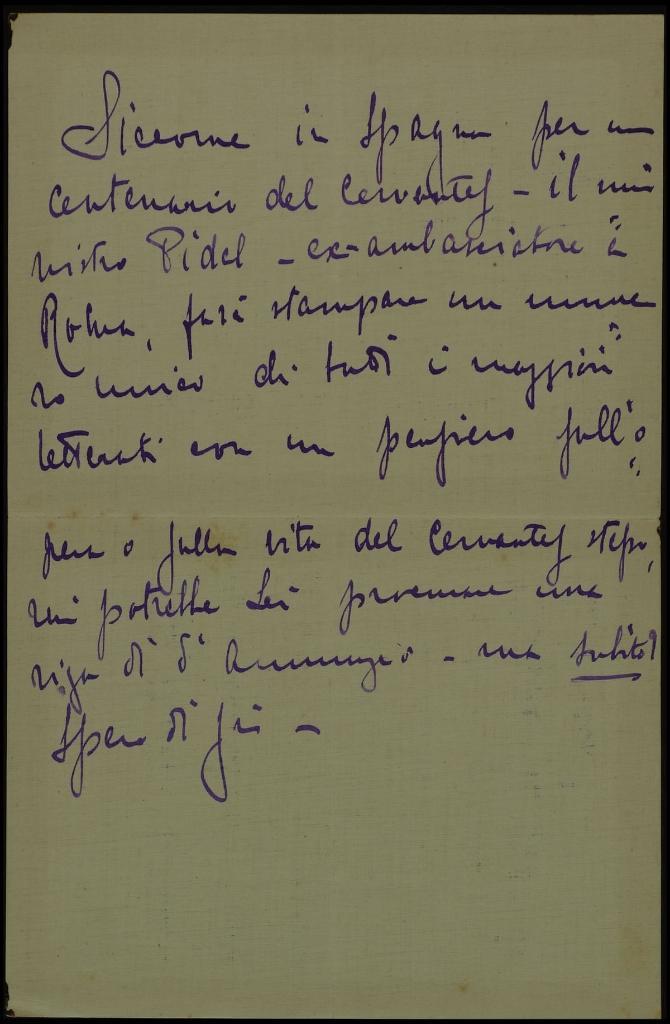 Siccome in Spagna per un
centenario del Cervantes – il mi
nistro Pidal – ex-ambasciatore a
Roma, farà stampare un nume
ro unico di tutti i maggiori
letterati con un pensiero sull'o
pera o sulla vita del Cervantes stesso,
mi potrebbe Lei procurare una
riga di d'Annunzio – ma subito?
Spero di sì –